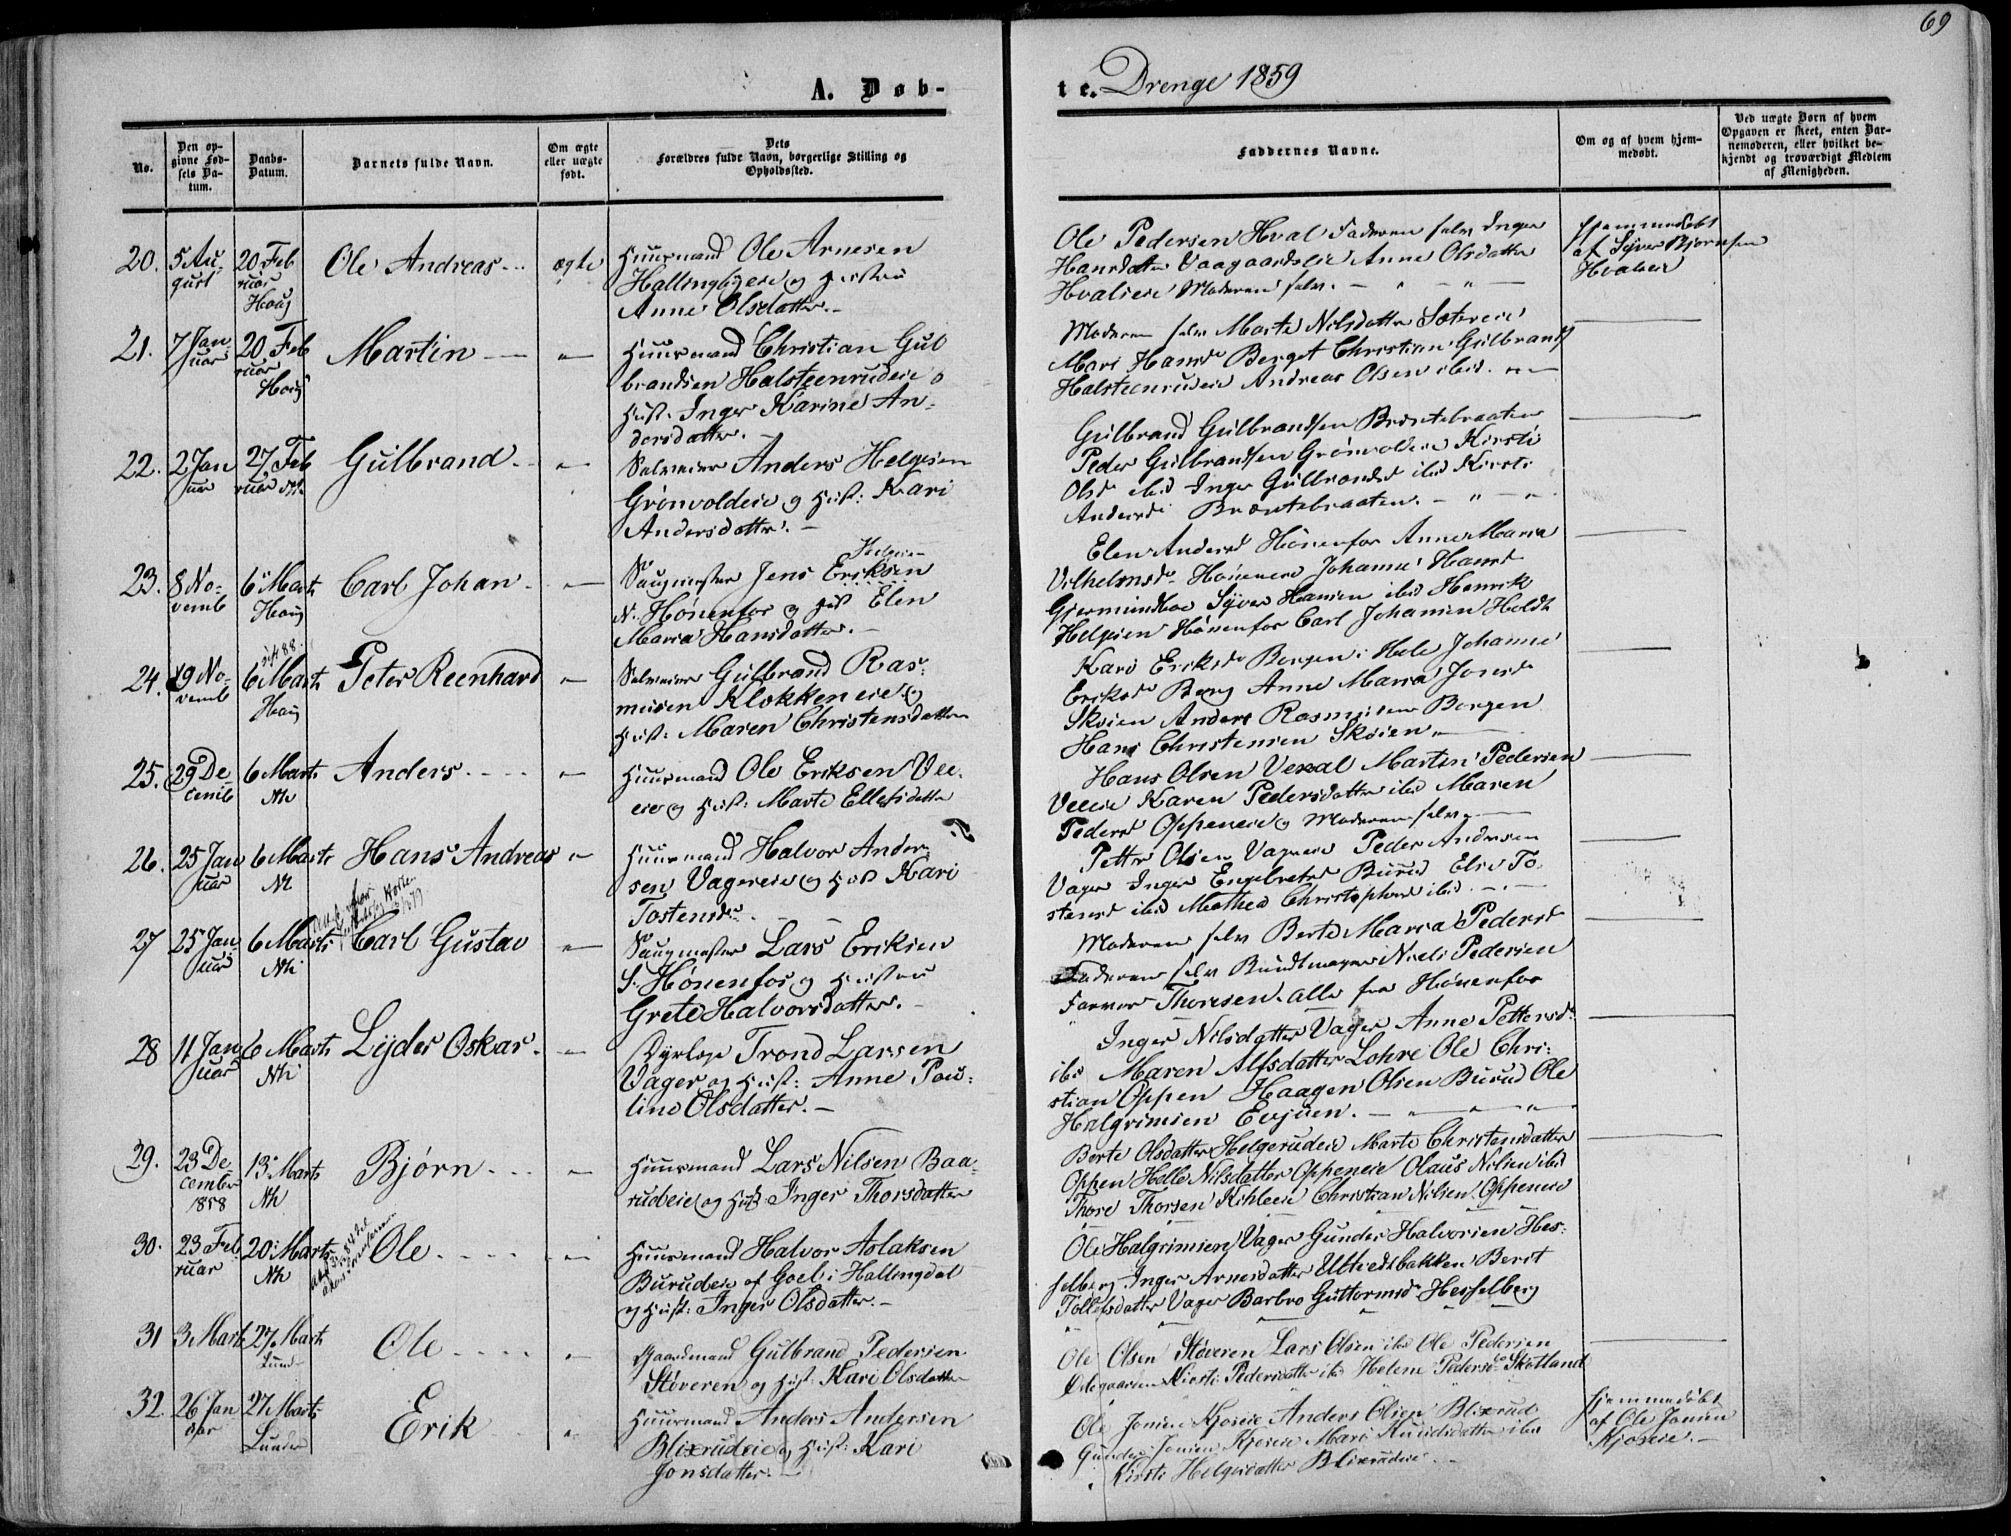 69
A. Døb-
te. Drenge 1859
No.
Den op-
givne Fød-
sels Da-
tum.
Daabs-
Datum.
Barnets fulde Navn.
Om ægte
eller uægte
født.
Dets
Forældres fulde Navn, borgerlige Stilling og
Opholdssted.
Faddernes Navne.
Om og af hvem hjem-
medøbt.
Ved uægte Børn af hvem
Opgaven er skeet, enten Bar-
nemoderen, eller hvilket be-
kjendt og troværdigt Medlem
af Menigheden.
20.
5 Au,
gust
20 Feb
ruar
Houg
Ole Andreas
ægte
Huusmand Ole Arnesen
Hallingbyeie og Hustru
Anne Olsdatter.
Ole Pedersen Hval Faderen selv Inger
Hansdatter Vaagaardseie Anne Olsdatter
Hvalseie Moderen selv.
Hjemmedøbt
af Syver Bjørnsen
Hvalseie
21.
7 Jan
uar
20 Feb
ruar
Houg
Martin
Huusmand Christian Gul
brandsen Halsteenrudeie o
Hust. Inger Karine An-
dersdatter.
Moderen selv Marte Nilsdatter Sætereie
Mari Hansd Berget Christian Gulbrands
Halsteenrudeie Andreas Olsen ibid.
22.
2 Jan
uar
27 Feb
ruar
Gulbrand
Selveier Anders Helgesen
Grønvoldeie og Hust: Kari
Andersdatter.
Gulbrand Gulbrandsen Bræntebraaten
Peder Gulbrandsen Grønvoldeie Kirsti
Olsd ibid Inger Gulbrandsd ibid Kirsti
Andersd Bræntebraaten.
23.
8 No-
vemb
6 Marts
Houg
Carl Johan
Helgesen
Saugmester Jens Eriksen
N. Hønenfos og Hust Elen
Maria Hansdatter.
Elen Andersd Hønenfos Anne Maria
Vilhelmsd Høneneie Johanne Hansd
Gjermundboe Syver Hansen ibid Henrik
Helgesen Hønenfos Carl Johansen Holdt
24.
19 No-
vemb
6 Marts
Houg
Peter Reenhard
Selveier Gulbrand Ras-
musen Klokkeneie og
Hust: Maren Christensdatter
Kari Eriksd Borgen i Hole Johanne
Eriksd Berg Anne Maria Jonsd
Skoien Anders Rasmusen Borgen
Hans Christensen Skoien
25.
29 De-
cemb
6 Marts
Nh
Anders
Huusmand Ole Eriksen Vee-
eie og Hust: Marte Ellefsdatter
Hans Olsen Vexal Martin Pedersen
Veeeie Karen Pedersdatter ibid Maren
Pedersd Oppeneie og Moderen selv
26.
25 Jan
uar
6 Marts
Nh
Hans Andreas
Huusmand Halvor Ander-
sen Vagereie og Hust Kari
Tostensd
Petter Olsen Vagereie Peder Andersen
Vager Inger Engebretsd Burud Else To-
stensd ibid Mathea Christophersd ibid
27
25 Jan
uar
6 Marts
Nh
Carl Gustav
Saugmester Lars Eriksen
S. Hønenfos og Hustru
Grete Halvorsdatter.
Moderen selv Berte Maria Pedersd
Faderen selv Bundtmager Niels Pedersen
Farver Thoresen. alle fra Hønenfos
28
11 Jan
uar
6 Marts
Nh
Lyder Oskar
Dyrlæge Trond Larsen
Vager og Hust: Anne Pau-
line Olsdatter.
Inger Nilsdatter Vager Anne Pettersd
ibid Maren Alfsdatter Lohre Ole Chri-
stian Oppen Haagen Olsen Burud Ole
Halgrimsen Evjuen.
29.
23 De-
cember
1858
13 Marts
Nh
Bjørn
Huusmand Lars Nilsen Baa-
rudeie og Hust Inger Thorsdatter
Berte Olsdatter Helgerudeie Marte Christensdatter
Oppen Helle Nilsdatter Oppeneie Olaus Nilsen ibid
Thore Thorsen Kihleeie Christian Nilsen Oppeneie
30.
23 Feb
ruar
20 Marts
Nh
Ole
Huusmand Halvor Aslaksen
Burudeie af Goel i Hallingdal
og Hust: Inger Olsdatter.
Ole Halgrimsen Vager Gunder Halvorsen Hes-
selberg Inger Arnesdatter Ultvedtbakken Berit
Tollefsdatter Vager Barbro Guttormsd Hesselberg
31
3 Marts
27 Marts
Lund
Ole
Gaardmand Gulbrand Pedersen
Støveren og Hust Kari Olsdatter
Ole Olsen Støveren Lars Olsen ibid Ole Pedersen
Ødegaarden Kirsti Pedersdatter ibid Helene Pedersd Skotland
32.
26 Jan
uar
27 Marts
Lunder
Erik
Huusmand Anders Andersen
Blixrudeie og Hust: Kari
Jonsdatter.
Ole Jonsen Kjoseie Anders Olsen Blixrud
Gunder Jonsen Kjoseie Mari Knudsdatter ibid
Kirsti Helgesdatter Blixrudeie
Hjemmedøbt
af Ole Jonsen
Kjoseie.